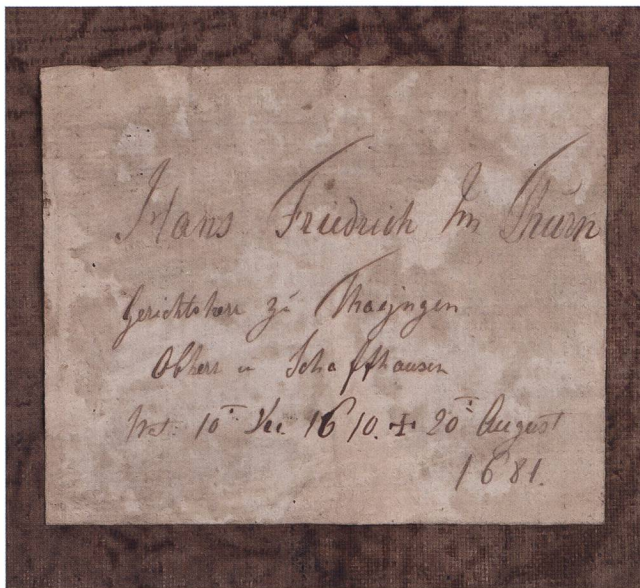 Hans Friedrich Im Thurn
Gerichtsherr zu Thaÿngen
Obherr in Schaffhausen
Nat: 10t 1610. + 20t August
1681.